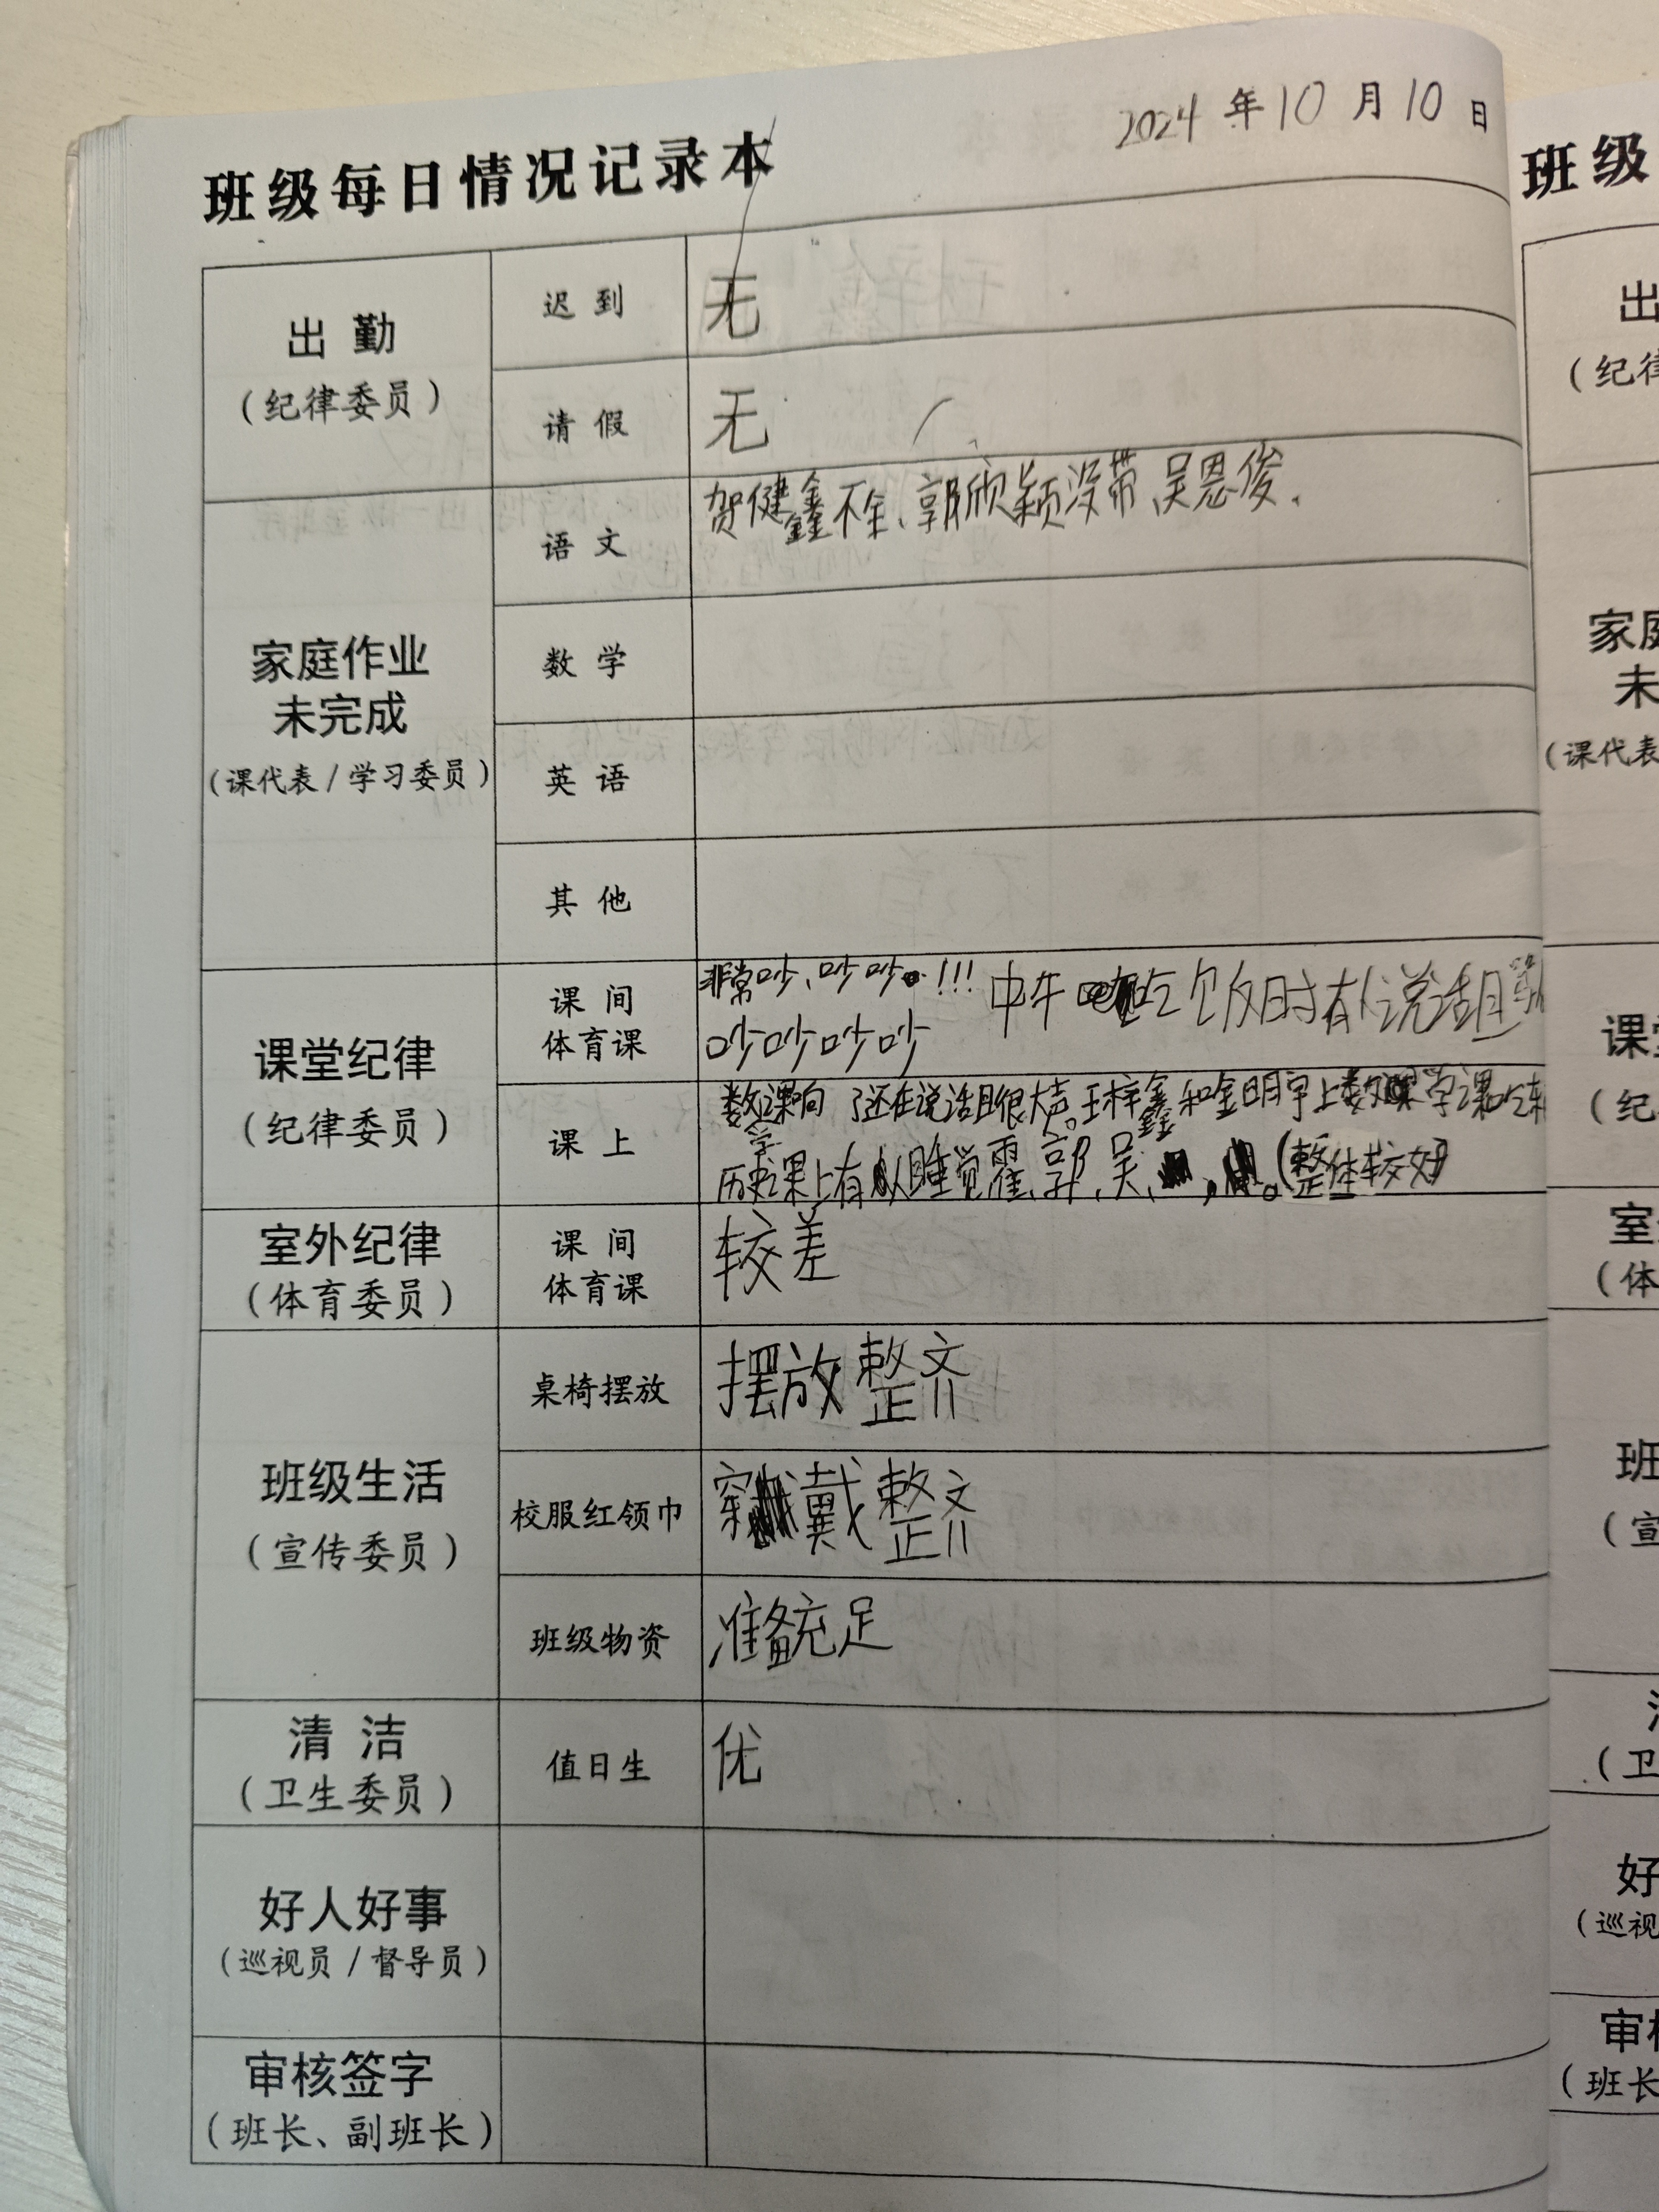 2024 年 10 月 10 日
班级每日情况记录本
出勤
（纪律委员）
迟到
无
请假
无
家庭作业
未完成
（课代表 / 学习委员）
语文
贺健鑫不全、郭欣颖没带、吴恩俊、
数学
英语
其他
课堂纪律
（纪律委员）
课间
体育课
非常吵、吵吵!!!
吵吵吵吵
中午吃饭时有人说话且
课上
数学课响了还在说话且很大声。王梓鑫和金明宇上数学课吃
历史课上有人睡觉霍、郭、吴、（整体较好）
室外纪律
（体育委员）
课间
体育课
较差
班级生活
（宣传委员）
桌椅摆放
摆放整齐
校服红领巾
穿戴整齐
班级物资
准备充足
清洁
（卫生委员）
值日生
优
好人好事
（巡视员 / 督导员）
审核签字
（班长、副班长）
班级
出
（纪律
家庭
未
（课代表
（纪
室
（体
班
（宣
（卫
好
（巡视
审核
（班长